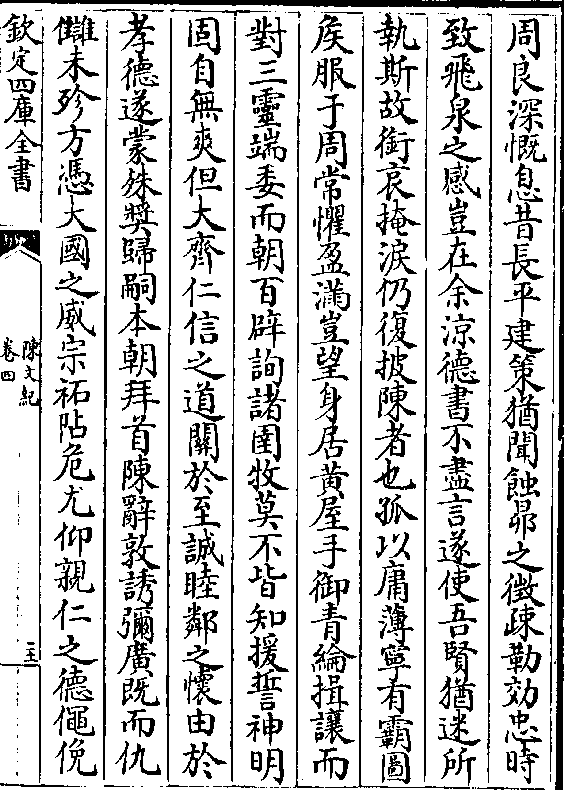 周良深慨息昔長平建策猶聞蝕昴之徴疎勒効忠時
致飛泉之感豈在余涼德書不盡言遂使吾賢猶迷所
執斯故銜哀掩淚仍復披陳者也孤以庸薄寧有霸圖
矦服于周常懼盈滿豈望身居黄屋手御青綸揖讓而
對三靈端委而朝百辟詢諸圉牧莫不皆知援誓神明
固自無爽但大齊仁信之道關於至誠睦鄰之懷由於
孝德遂蒙殊奬歸嗣本朝拜首陳辭敦誘彌廣既而仇
讎未殄方憑大國之威宗祏阽危尤仰親仁之德僶俛
欽定四庫全書
陳文紀
卷四
二十五